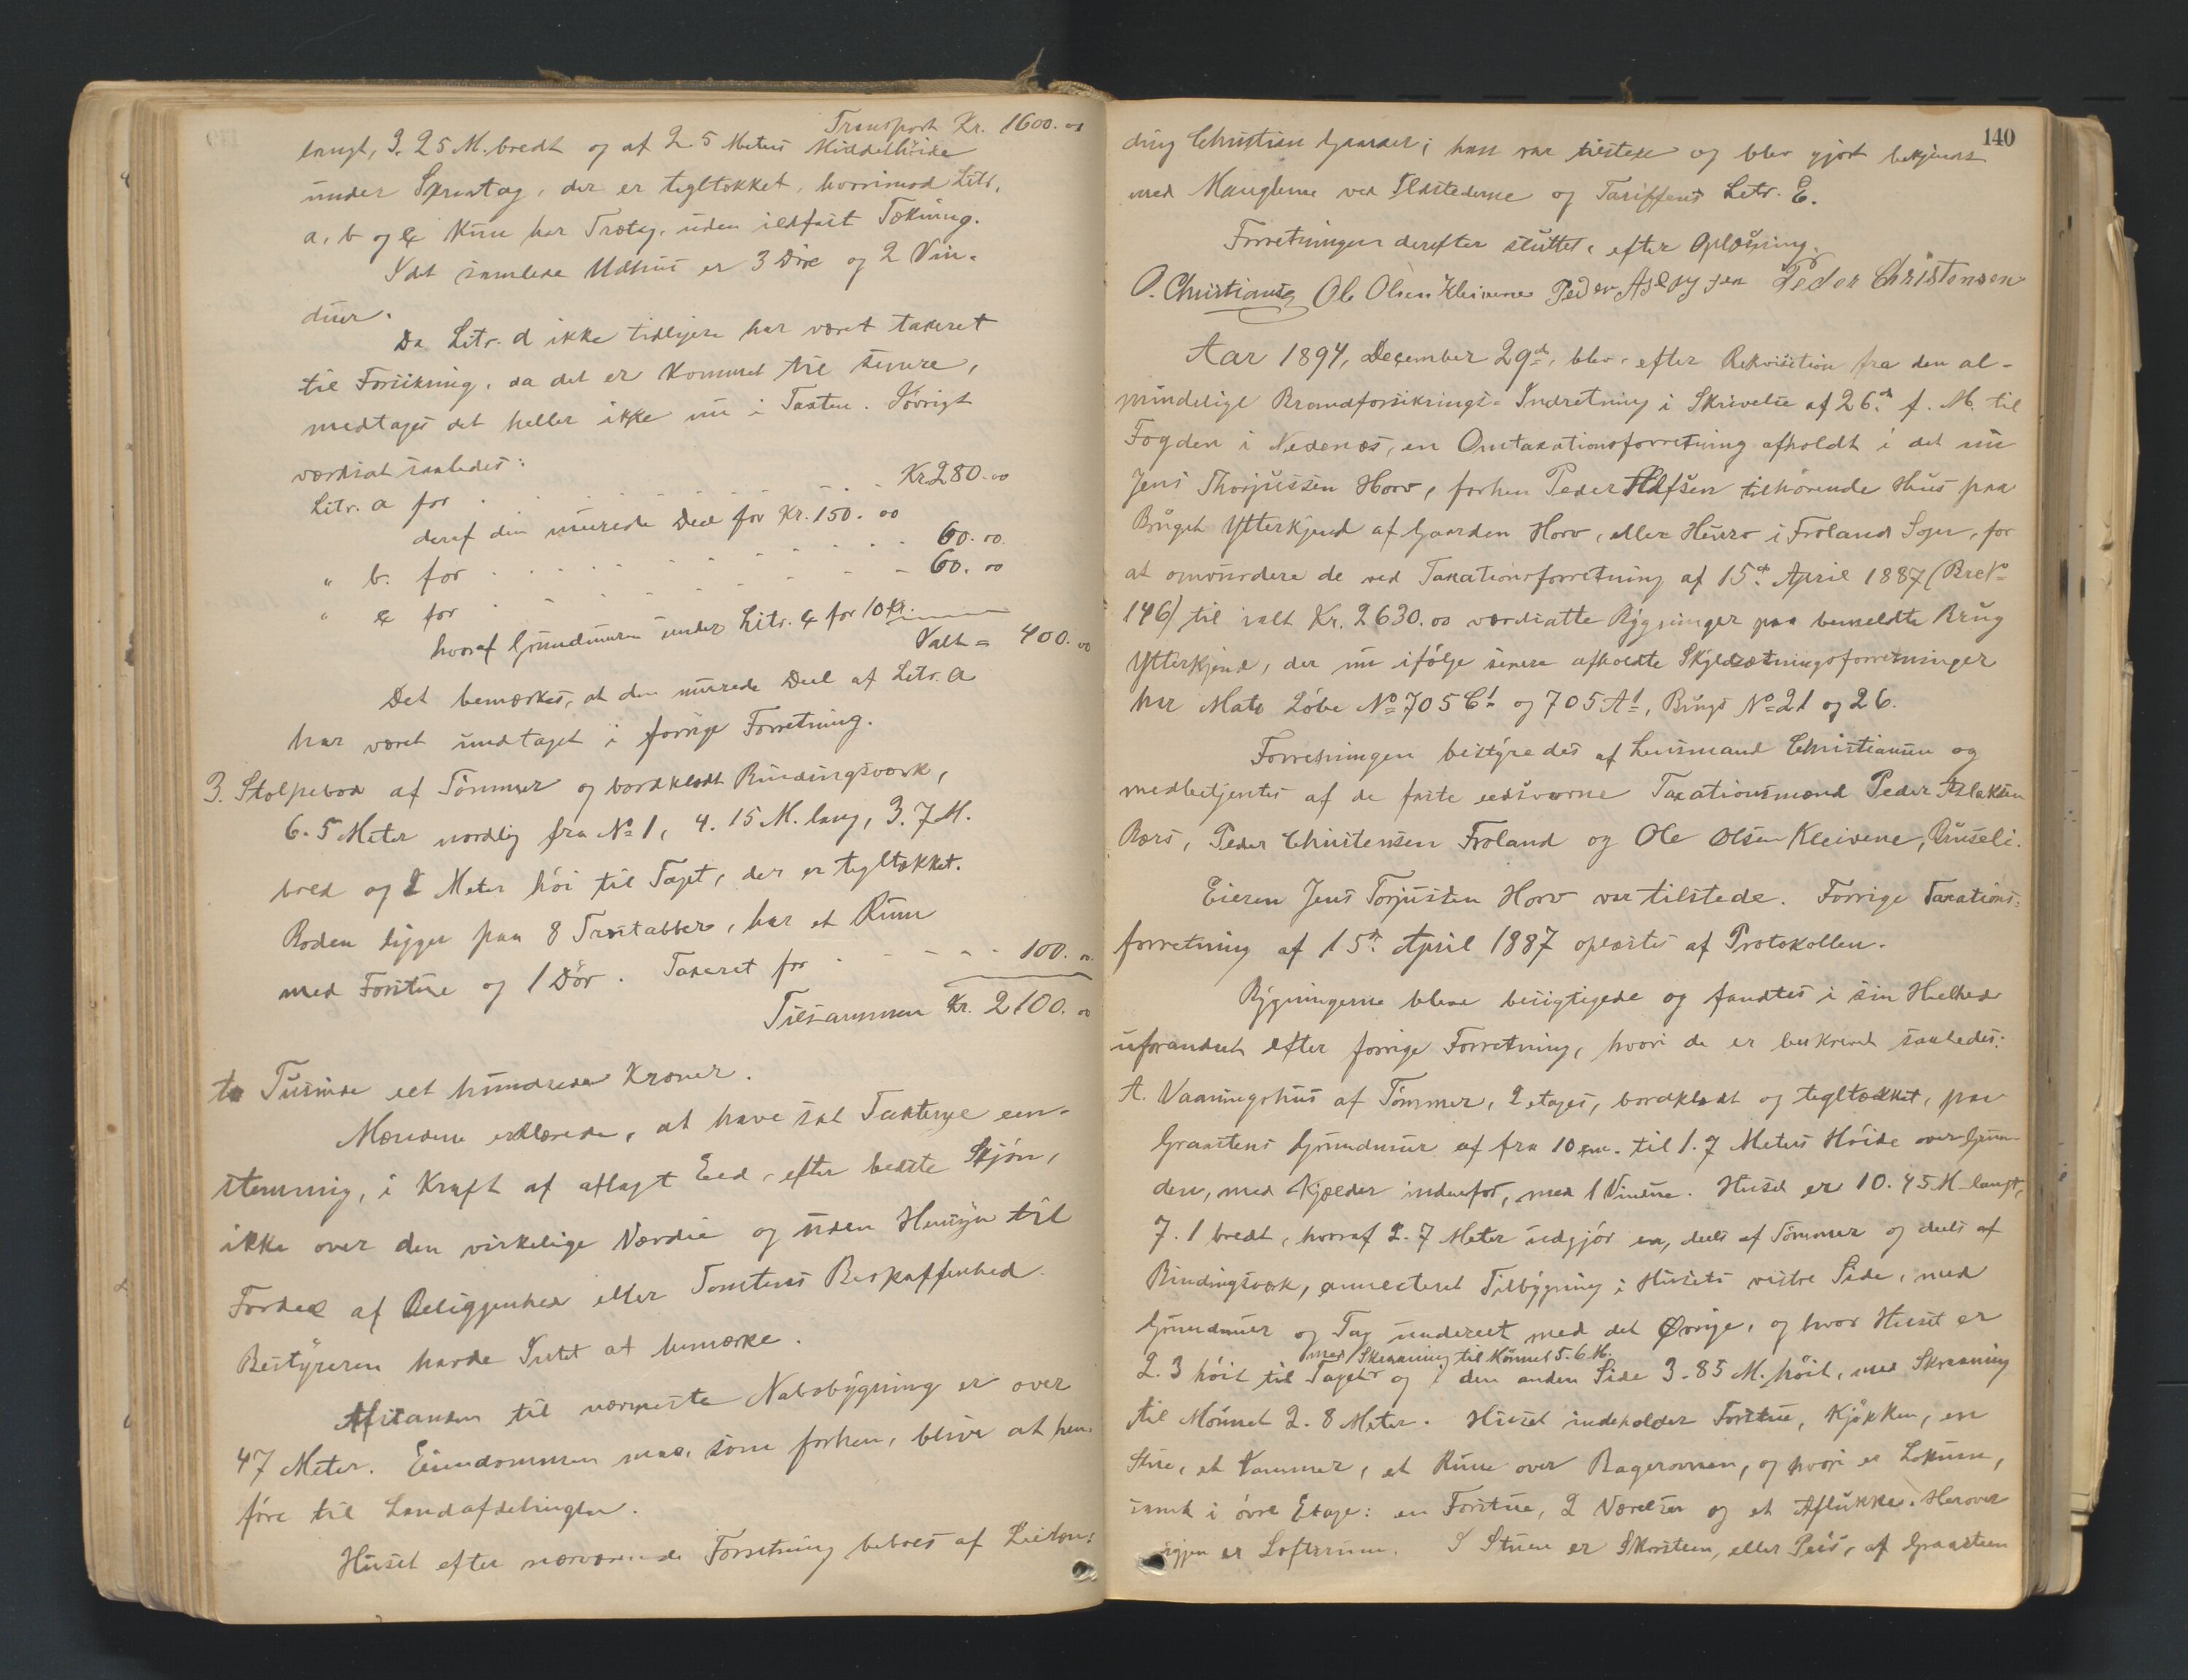 Transport Kr. 1600.00
langt, 3.25 M. bredt og af 2.5 Meters Middelhöide
under Sperretag, der er tegltækket, hvorimod Litr.
a, b og c kun har Trætag, uden ildfast Tækning.
I det samlede Udhus er 3 Döre og 2 Vin-
duer.
Da Litr. d ikke tidligere har været taxeret
til Forsikring, da det er kommet til senere,
medtages det heller ikke nu i Taxten. Iövrigt
værdsat saaledes:
Litr. a for . . . . . . . Kr. 280.00
deraf den murede Deel for Kr. 150.00
" b. for . . . . . . . 60.00
" c for . . . . . . . 60.00
hvoraf Grundmuren under Litr. c for 10 Kr.
Ialt = 400.00
Det bemærkes, at den murede Deel af Litr. a
har været undtaget i forrige Forretning.
3. Stolpebod af Tömmer og bordklædt Bindingsværk,
6.5 Meter nordlig fra No 1, 4.15 M. lang, 3.7 M.
bred og 2 Meter höi til Taget, der er tegltækket.
Boden ligger paa 8 Træstabber, har et Rum
med Forstue og 1 Dör. Taxeret for . . . . 100.00
Tilsammen Kr. 2100.00
to Tusinde eet hundrede Kroner.
Mændene erklærede, at have sat Taxterne een-
stemmig, i Kraft af aflagt Eed, efter bedste Skjön,
ikke over den virkelige Værdie og uden Hensyn til
Fordeel af Beliggenhed eller Tomtens Beskaffenhed.
Bestyreren havde Intet at bemærke.
Afstanden til nærmeste Nabobygning er over
47 Meter. Eiendommen maa, som forhen, blive at hen-
före til Landafdelingen.
Huset efter nærværende Forretning beboes af
140
ding Christian Gaaser; han var tilstede og blev gjort bekjendt
med Manglerne ved Ildstederne og Tariffens Litr. E.
Forretningen derefter sluttet, efter Oplæsning.
O. Christiansen Ole Olsen Kleivene Peder Aslagsen Peder Christensen
Aar 1894, December 29de, blev, efter Rekvisition fra den al-
mindelige Brandforsikrings-Indretning i Skrivelse af 26de f. M. til
Fogden i Nedenæs, en Omtaxationsforretning afholdt i det nu
Jens Thorjussen Horv, forhen Peder Alfsen tilhörende Hus paa
Bruget Ytterkjend af Gaarden Horv, eller Hurv i Froland Sogn, for
at omvurdere de ved Taxationsforretning af 15de April 1887 (Br. No
146) til ialt Kr. 2630.00 værdsatte Bygninger paa bemeldte Brug
Ytterkjend, der nu ifölge senere afholdte Skyldsætningsforretninger
har Matr. Löbe No 705 C1 og 705 A1, Brugs No 21 og 26.
Forretningen bestyredes af Lensmand Christiansen og
medbetjentes af de faste eedsvorne Taxationsmænd Peder Aslaksen
Bærs, Peder Christensen Froland og Ole Olsen Kleivene, Buseli.
Eieren Jens Torjussen Horv var tilstede. Forrige Taxations-
forretning af 15de April 1887 oplæstes af Protokollen.
Bygningerne bleve besigtigede og fandtes i sin Helhed
uforandret efter forrige Forretning, hvori de er beskrevet saaledes:
A. Vaaningshus af Tömmer, 2 etages, bordklædt og tegltækket, paa
Graastens Grundmur af fra 10 cm. til 1.7 Meters Höide over Grun-
den, med Kjælder indenfor, med 1 Vindue. Huset er 10.45 M. langt,
7.1 bredt, hvoraf 2.7 Meter udgjör en, deels af Tömmer og deels af
Bindingsværk, annecteret Tilbygning i Husets vestre Side, med
Grundmur og Tag undereet med det Övrige, og hvor Huset er
med Skraaning til Mönnet 5.6 M.
2.3 höit til Taget og i den anden Side 3.85 M. höit, med Skraaning
til Mönnet 2.8 Meter. Huset indeholder Forstue, Kjökken, en
Stue, et Kammer, et Rum over Bagerovnen, og hvori er Lokum,
samt i övre Etage: en Forstue, 2 Værelser og et Aflukke. Herover
igjen er Loftsrum. I Stuen er Skorsteen, eller Peis, af Graasteen